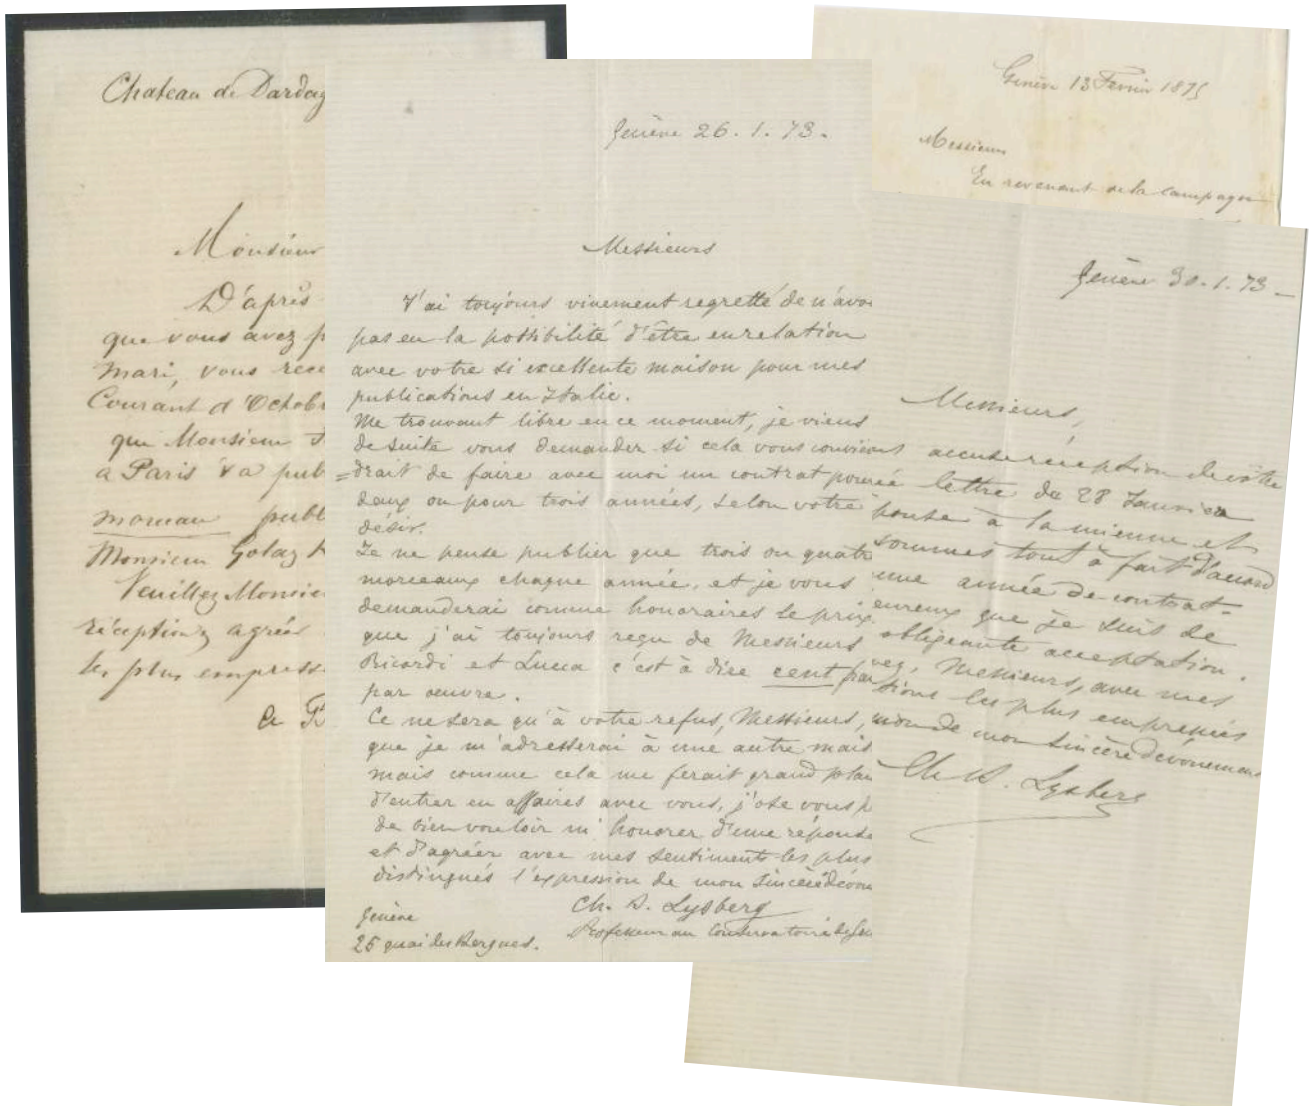 Chateau de Dardag
Monsieur
D'après
que vous avez p
mari, vous rece
Courant d'Octob
que Monsieur
a Paris & a pub
morceau publ
Monsieur Golaz
Veuillez Monsie
réception, agréer
les plus empress
Genève 26.1.73.
Messieurs
J'ai toujours vivement regretté de n'avo
pas eu la possibilité d'être en relation
avec votre si excellente maison pour mes
publications en Italie.
Me trouvant libre en ce moment, je viens
de suite vous demander si cela vous convien
=drait de faire avec moi un contrat pour
deux ou pour trois années, selon votre
désir.
Je ne pense publier que trois ou quatr
morceaux chaque année, et je vous
demanderai comme honoraires le prix
que j'ai toujours reçu de Messieurs
Ricordi et Lucca c'est à dire cent fra
par oeuvre.
Ce ne sera qu'à votre refus, Messieurs,
que je m'adresserai à une autre mais
mais comme cela me ferait grand plai
d'entrer en affaires avec vous, j'ose vous p
de bien vouloir m'honorer d'une réponse
et d'agréer avec mes sentiments les plus
distingués l'expression de mon sincère dévou
Ch. B. Lysberg
Professeur au Conservatoire de Ge
Genève
25 quai des Bergues.
Genève 13 Fevrier 1875
Messieurs
En revenant de la campagne
Genève 30.1.73_
Messieurs,
accuse réception de vôtre
lettre du 28 Janvier
ponse à la mienne et
sommes tout à fait d'accord
une année de contrat=
eureux que je suis de
obligeante acceptation.
ez, Messieurs, avec mes
tions les plus empressées
mon sincère dévouement
Ch. B. Lysberg